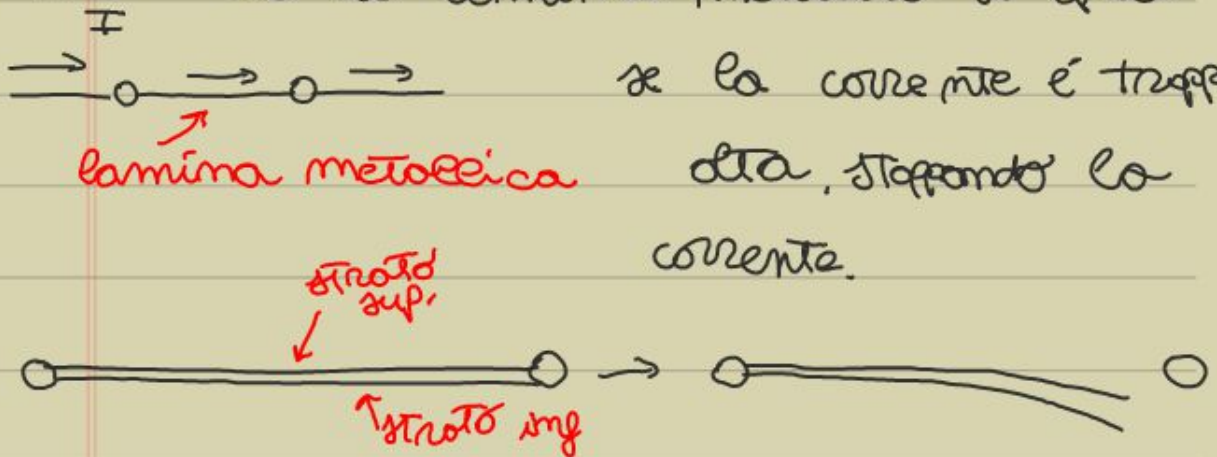 I
se la corrente é tropp
lamina metallica
alta, stoppando la
corrente.
strato
sup.
strato inf